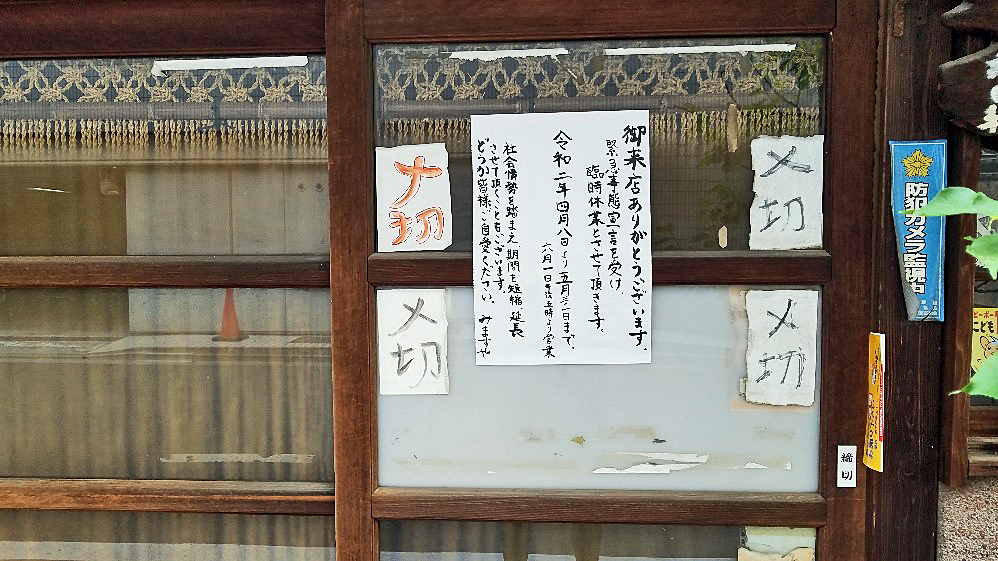 御来店ありがとうございます。
緊急事態宣言を受け、
臨時休業とさせて頂きます。
令和二年四月八日より五月三一日まで、
六月一日午后五時より営業
社会情勢を踏まえ、期間を短縮、延長
させて頂くこともございます。
どうか皆様ご自愛ください。みますや
〆切
〆切
〆切
〆切
締切
防犯カメラ監視中
こども